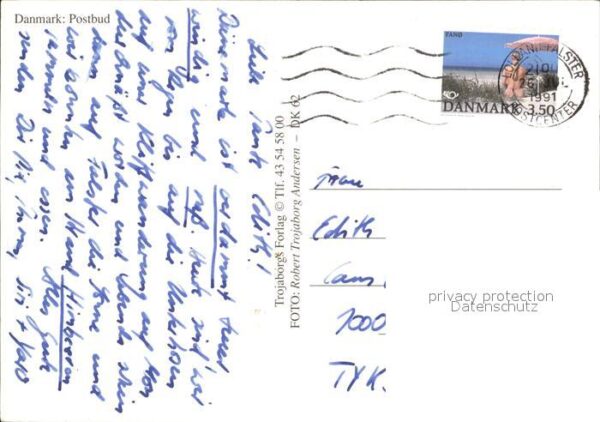 Danmark: Postbud
Liebe Tante Edith!
Dänemark ist verdammt teuer,
windig und naß. Heute sind wir
von Regen bis auf die Unterhosen
auf einer Kliffwanderung auf Møn
durchnäßt worden und abends schien
dann auf Falster die Sonne und
wir konnten am Strand Himbeeren
sammeln und essen. Alles Gute
senden Dir
Trojaborgs Forlag © Tlf. 43 54 58 00
FOTO: Robert Trojaborg Andersen – DK 62
FANØ
DANMARK 3.50
FALSTER
1991
POSTCENTER
Frau
Edith
1000
privacy protection
Datenschutz